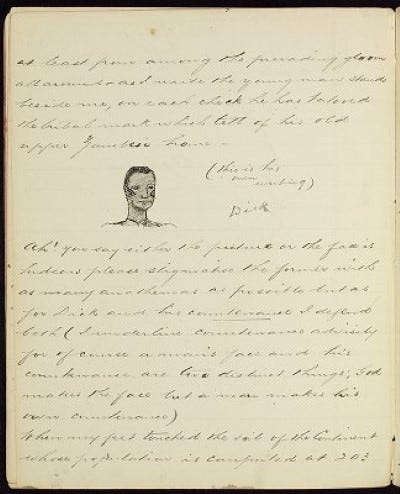 at least from among the prevading gloom
all around - as I write the young man stands
beside me, on each cheek he has tatooed
the tribal mark which tell of his old
upper Zambesi home -
(this is his
own
writing)
Dick
Ah! you say either the picture or the face is
hideous please stigmatise the former with
as many anathemas as possible but as
for Dick and his countenance I defend
both (I underline countenance advisedly
for of course a man's face and his
countenance are two distinct things; God
makes the face but a man makes his
own countenance)
When my feet touched the soil of the Continent
whose population is computed at 203